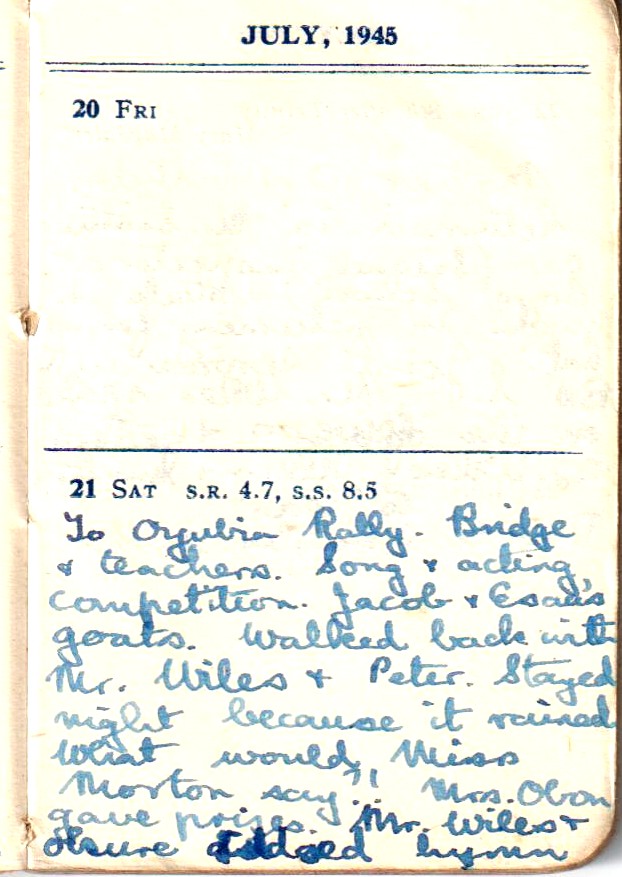 JULY, 1945
20 FRI
21 SAT S.R. 4.7, S.S. 8.5
To Oyubia Rally. Bridge
& teachers. Song & acting
competition. Jacob & Esau's
goats. Walked back with
Mr. Wiles & Peter. Stayed
night because it rained
What would Miss
Morton say?! Mrs. Obon
gave prizes. Mr. Wiles &
hymn